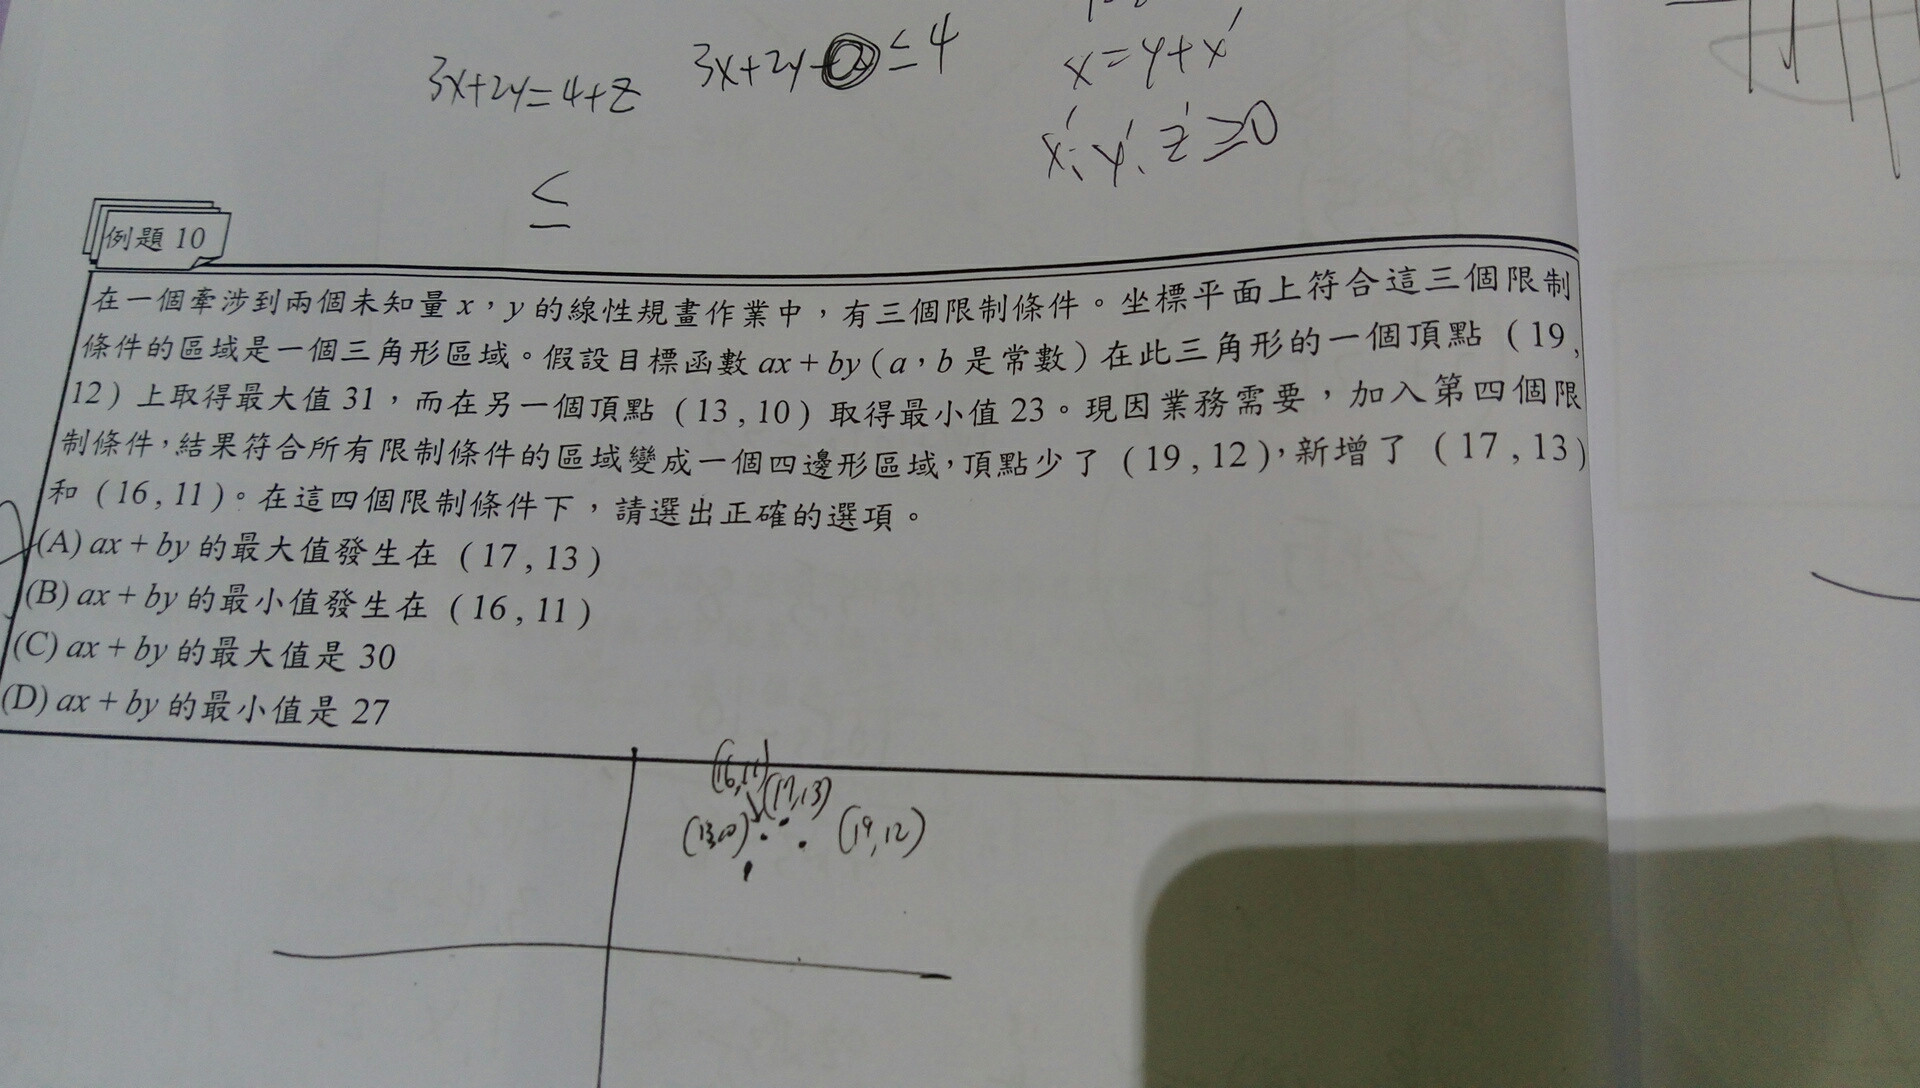 3x+2y=4+z
3x+2y ≤4
x=y+x'
x', y', z' ≥0
≤
例題 10
在一個牽涉到兩個未知量 x，y 的線性規畫作業中，有三個限制條件。坐標平面上符合這三個限制
條件的區域是一個三角形區域。假設目標函數 ax + by ( a，b 是常數 ) 在此三角形的一個頂點 ( 19 ,
12 ) 上取得最大值 31，而在另一個頂點 ( 13 , 10 ) 取得最小值 23。現因業務需要，加入第四個限
制條件，結果符合所有限制條件的區域變成一個四邊形區域，頂點少了 ( 19 , 12 )，新增了 ( 17 , 13 )
和 ( 16 , 11 )。在這四個限制條件下，請選出正確的選項。
(A) ax + by 的最大值發生在 ( 17 , 13 )
(B) ax + by 的最小值發生在 ( 16 , 11 )
(C) ax + by 的最大值是 30
(D) ax + by 的最小值是 27
(16,11)
(17,13)
(13,10)
(19,12)